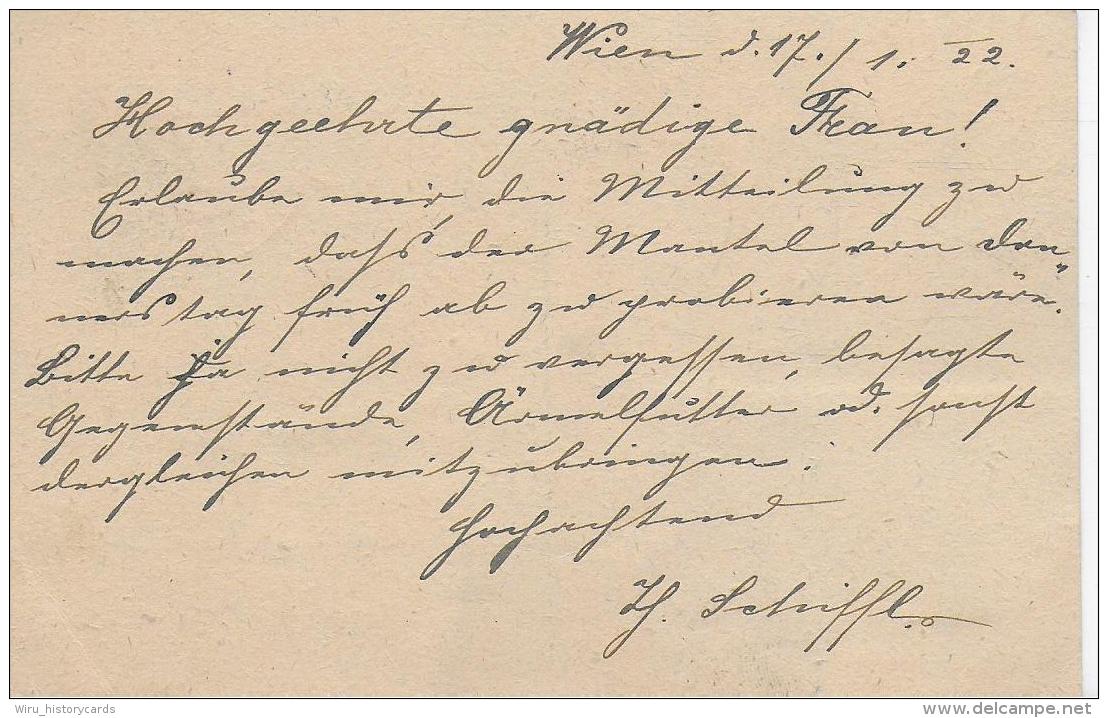 Wien d. 17./1. 22.
Hochgeehrte gnädige Frau!
Erlaube mir, die Mitteilung zu
machen, dass der Mantel von Don„
nerstag früh ab zu probieren wäre.
Bitte ja nicht zu vergessen, besagte
Gegenstände, Ärmelfutter od. sonst
dergleichen mitzubringen.
Hochachtend
Th. Schiffl.
Wiru_historycards
delcampe.net